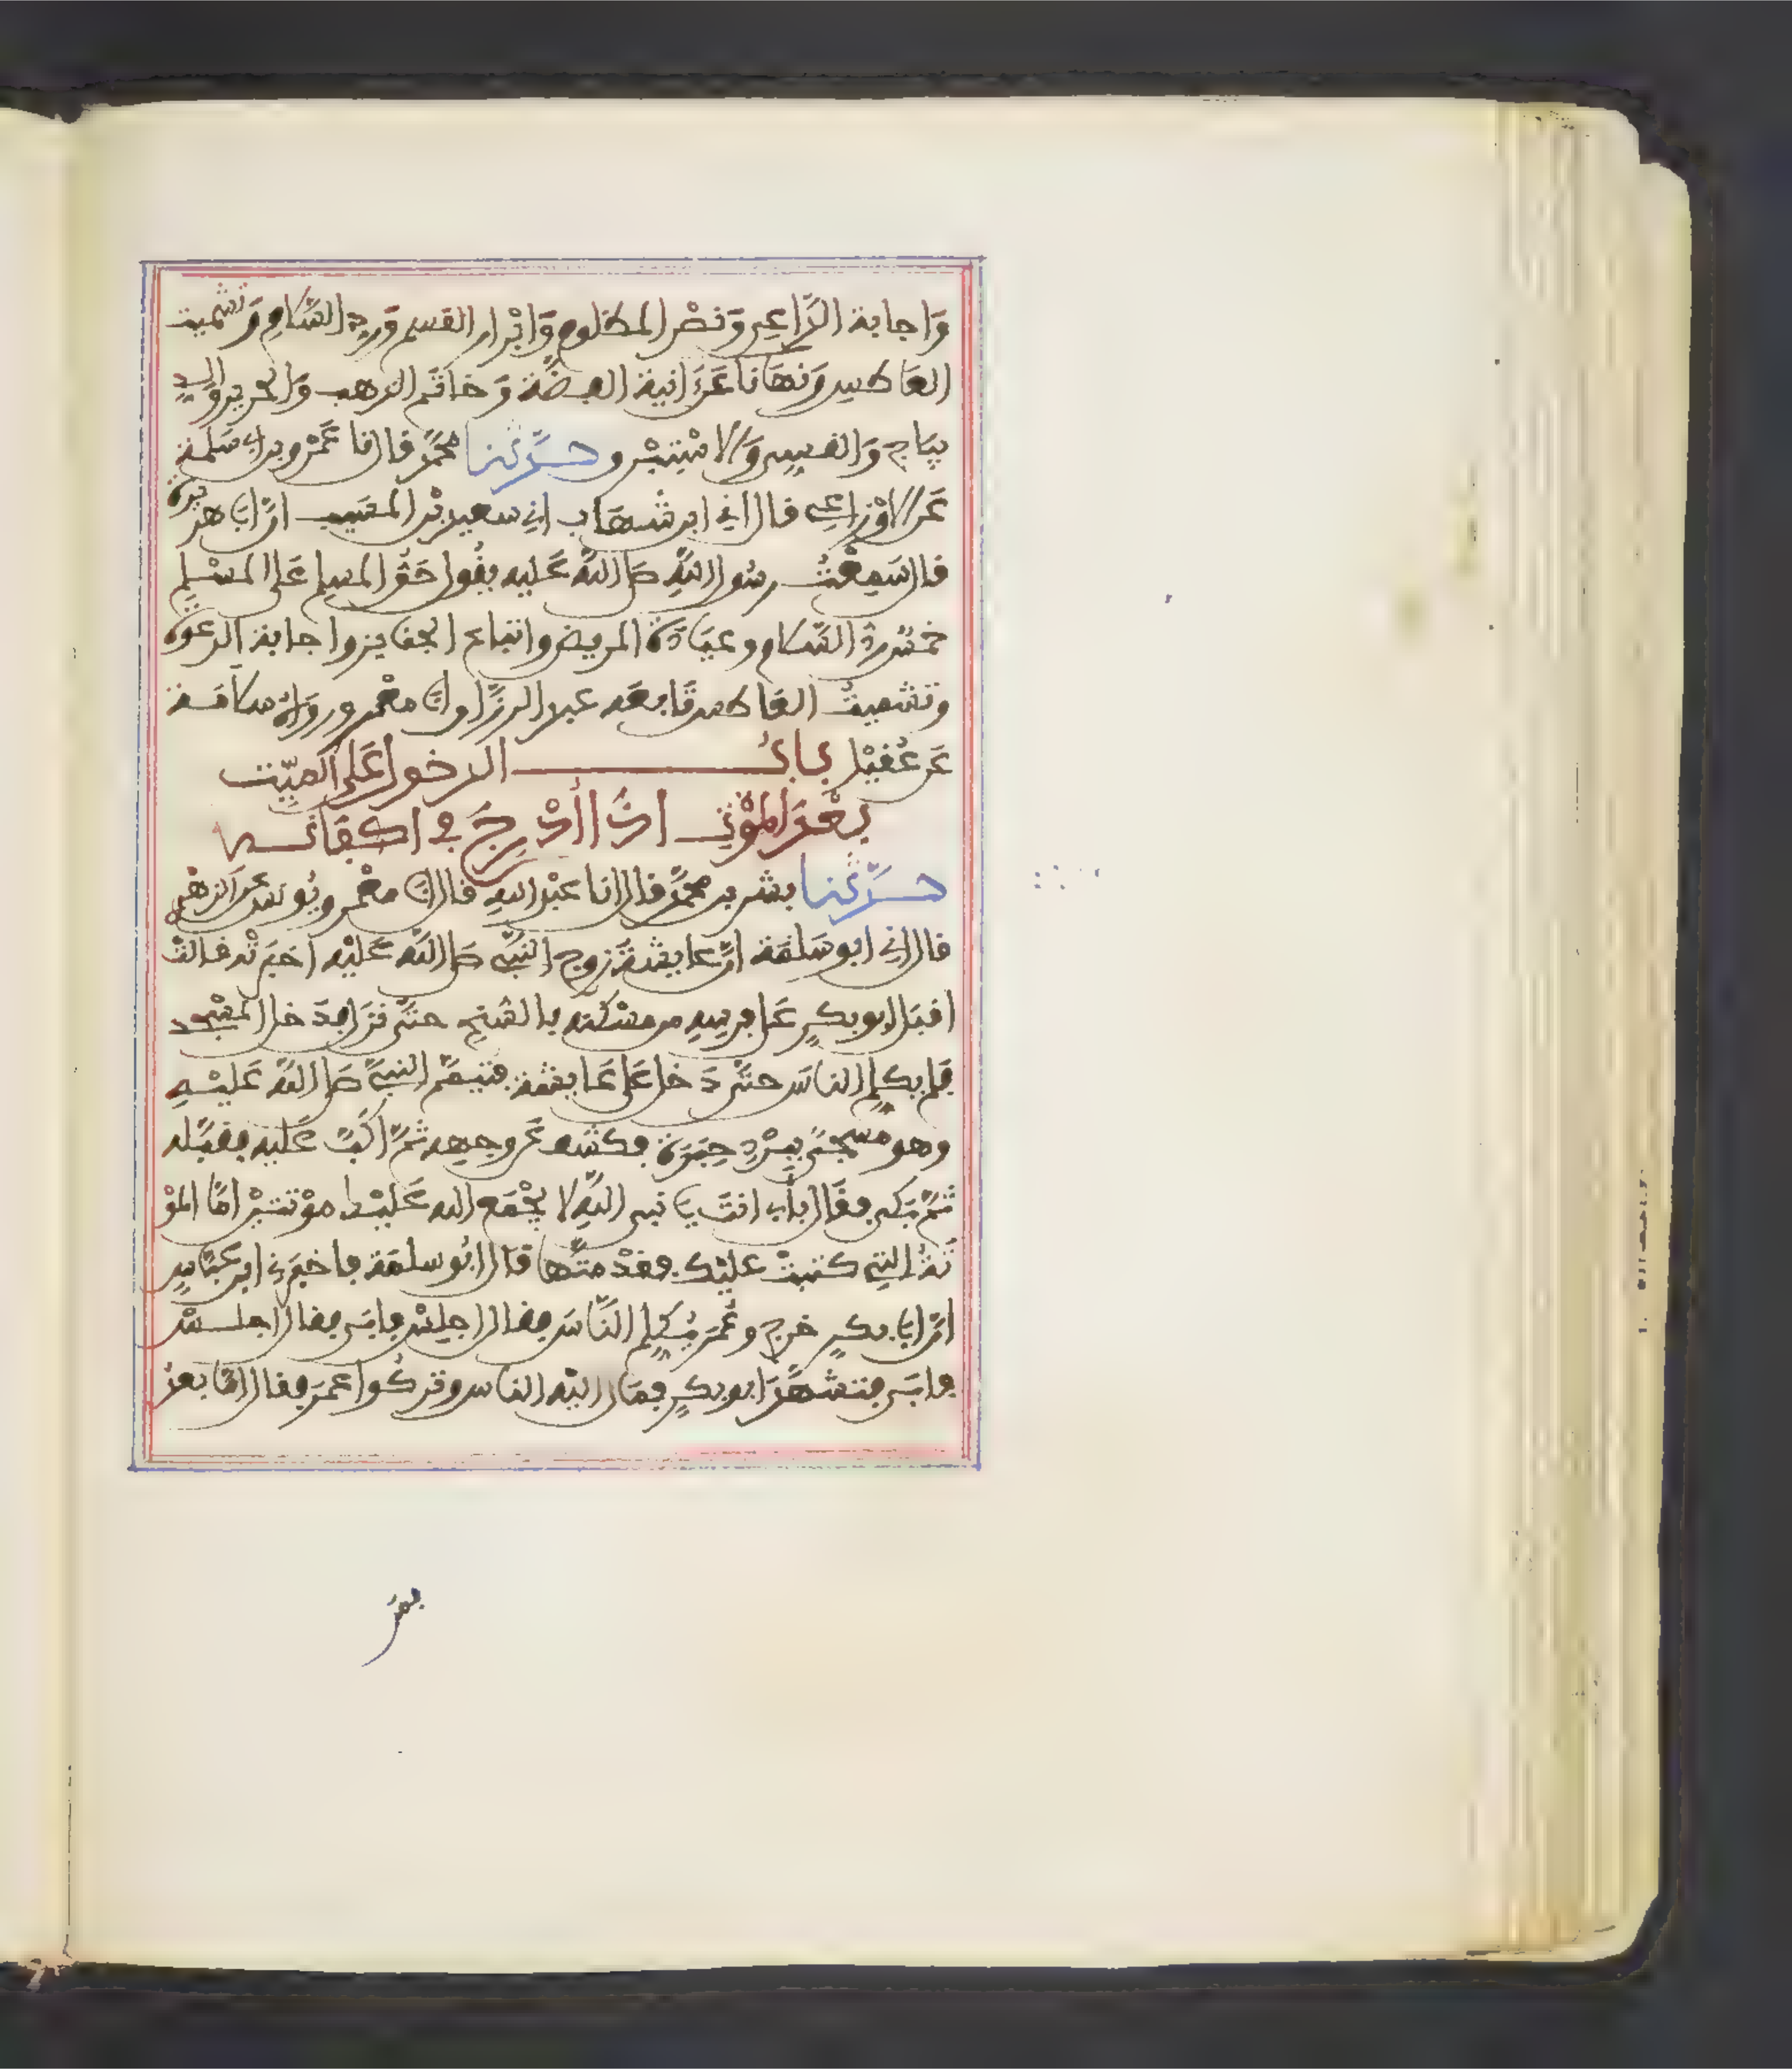 وَاجابة الدَّاعِى وَنصْر المظلوم وَابْرار القسم وَرد السَّلام وَتشميت
العَاطس وَنهَانا عَنَ انية الفضَّة وَخاتَم الذهب وَالحرير وَالد
يبَاج وَالقسى وَالاسْتبْرو حدَّثنا محمَّد قال نا عَمْرو بن ابى سَلمة
عَن الاوْزاعِى قال انى ابن شهَاب انى سعيد بْن المسَيب انَّ ابَا هريرة
قال سَمِعْتُ رسُول اللهِ صَلى اللهُ عَليه يقُول حَقُّ المسلم عَلى المسْلِم
خمْسٌ ردُّ السَّلام وعيَادَة المريض واتباع الجنايز واجابة الدعوَة
وتشميتُ العَاطس تَابعَه عبد الرزَّاق انَا معْمر وروَاهُ سلامَة
عَن عُقيْل بابُ الدخول عَلى الميِّت
بعْدَ الموْتِ اذَا أدْرِجَ في اكفَانه
حدَّثنا بشر بن محمَّد قال انا عبْد الله قال انَا معْمر ويُونس عن الزهْرى
قال انى ابو سَلمَة انَّ عايشةَ زوج النبىِّ صَلى اللهُ عَليْه اخبَرتْه قالتْ
اقبَل ابو بكرٍ عَلى فرسِهِ من مسْكنه بالسُّنحِ حتَّى نزَل فدَخل المسْجد
فلم يكلِّم الناسَ حتَّى دَخل عَلى عَايشة فتيمَّم النبىَّ صَلى اللهُ عَليْهِ
وهو مسجًّى ببُرْدِ حِبَرَة فكشف عَن وجهه ثمَّ اكبَّ عَليه فقبَّله
ثمَّ بَكى فقَال بأبى انتَ يَا نبى اللهِ لا يجْمَع الله عَليْك موْتتيْن امَّا الموْ
تةُ التِى كتبتْ عليْك فقدْ متَّها قال ابُو سلمَة فاخبَرنى ابن عبَّاسٍ
انَّ ابَا بكرٍ خرج وعُمَر يُكلِّم النَّاسَ فقال اجلِسْ فابَى فقال اجلسْ
فابَى فتشهَّدَ ابو بكرٍ فمَال اليْه الناس وتركُوا عمَر فقال امَّا بعدُ
بعدُ